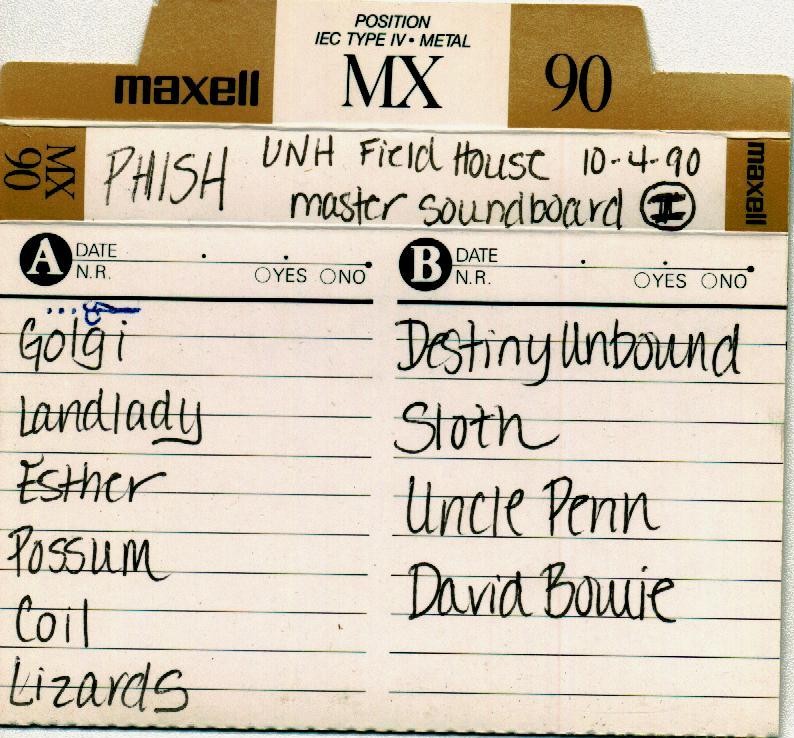 POSITION
IEC TYPE IV • METAL
maxell MX 90
MX 90
PHISH UNH Field House 10-4-90
master soundboard II
maxell
A DATE
N.R. YES NO
B DATE
N.R. YES NO
Golgi
Landlady
Esther
Possum
Coil
Lizards
Destiny Unbound
Sloth
Uncle Penn
David Bowie